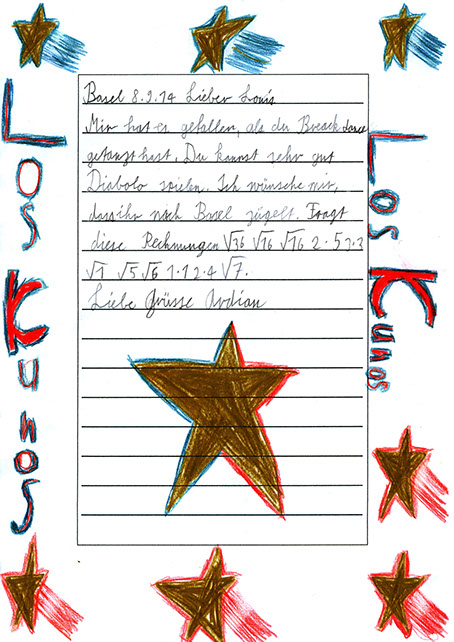 Los Kunos
Basel 8.9.14 Lieber Louis
Mir hat es gefallen, als du Breack dance
getanzt hast. Du kannst sehr gut
Diabolo spielen. Ich wünsche mir,
dass ihr nach Basel zügelt. Fragt
diese Rechnungen √36 √16 √16 2·5
√1 √5 √6 1·1 2·4 √7.
Liebe Grüsse Ardian
Los Kunos